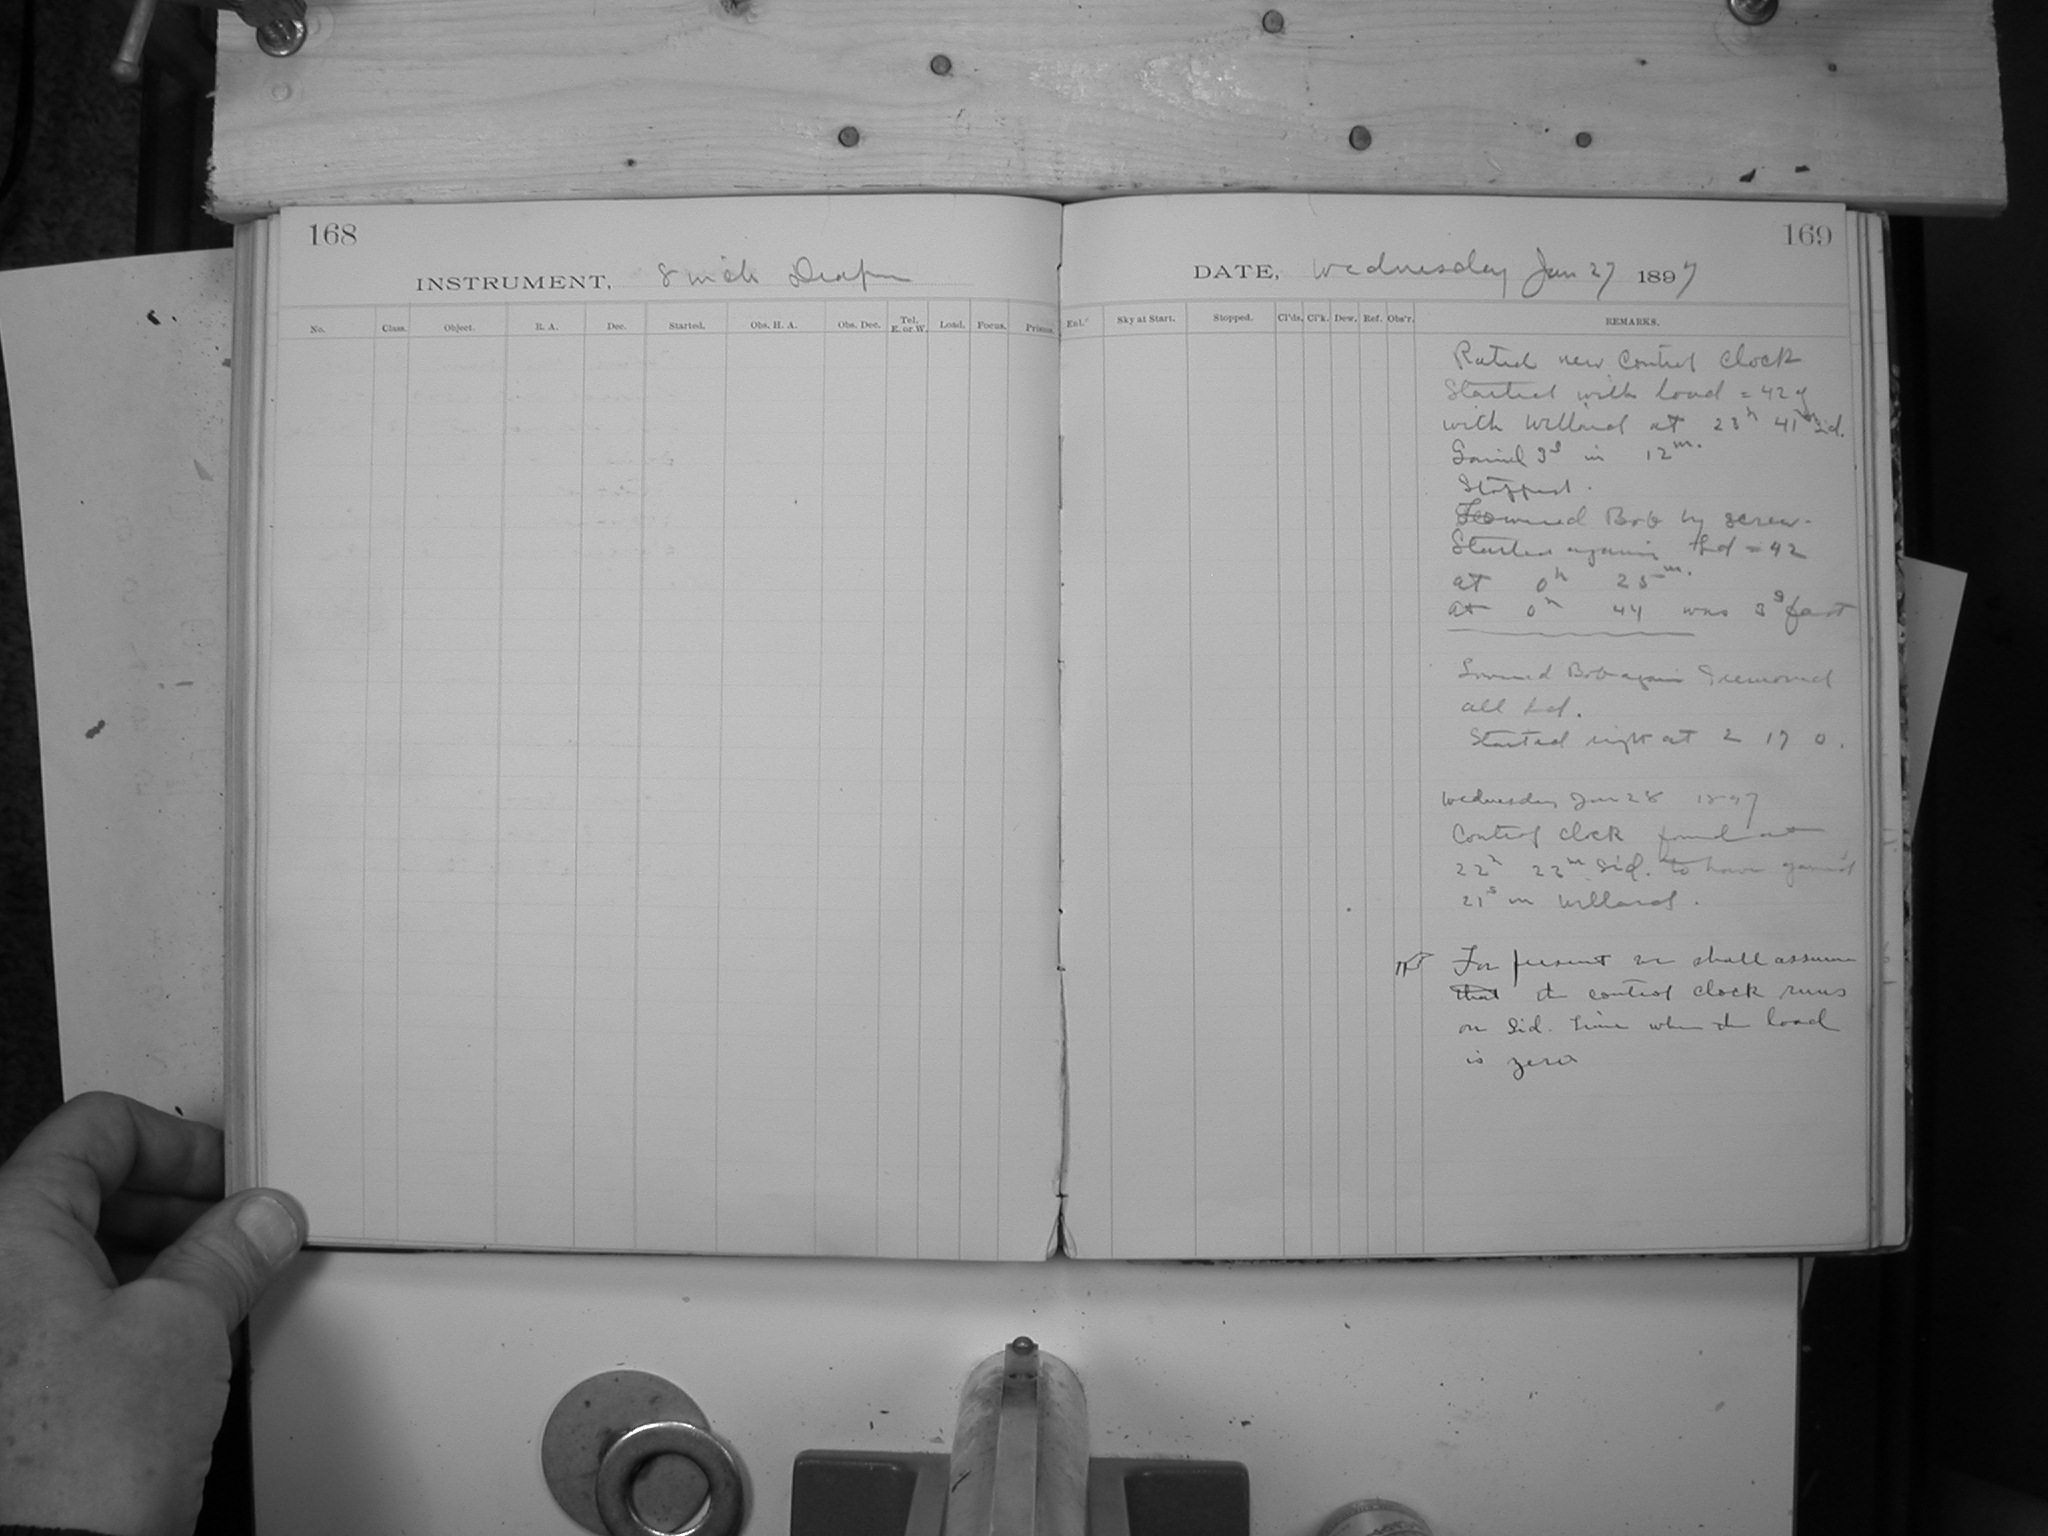 168
INSTRUMENT, 8 inch Draper
No. Class. Object. R. A. Dec. Started. Obs. H. A. Obs. Dec. Tel. E. or W. Load. Focus. Prisms.
169
DATE, Wednesday Jan 27 1897
Enl. Sky at Start. Stopped. Cl'ds. Cl'k. Dew. Ref. Obs'r. REMARKS.
Rated new Control Clock
Started with load = 42 g
with Willard at 23h 41m Sid.
Gained 3s in 12m.
Stopped.
Lowered Bob by screw.
Started again Ld = 42
at 0h 25m.
at 0h 44 was 3s fast
Lowered Bob again & removed
all Ld.
Started right at 2 17 0.
Wednesday Jan 28 1897
Control Clock found at
22h 23m Sid. to have gained
21s on Willard.
For present we shall assume
that the control clock runs
on Sid. time when the load
is zero